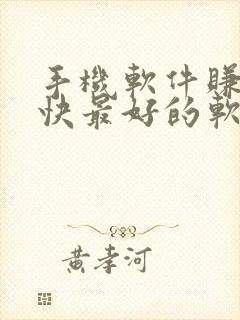 手機軟件賺
快最好的軟
黄孝河